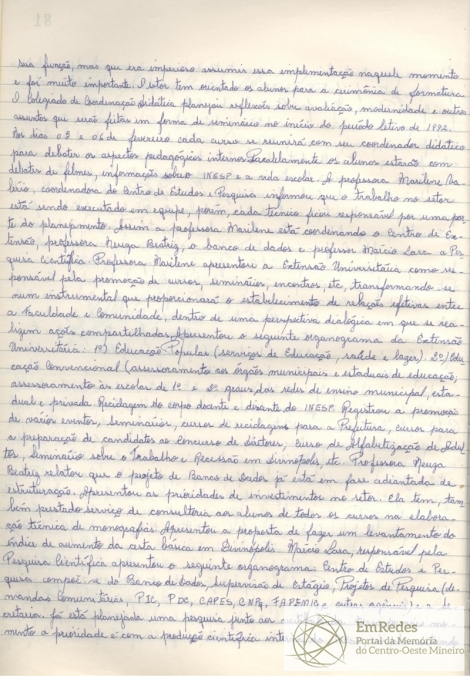 81
sua função, mas que era imperioso assumir essa implementação naquele momento
e foi muito importante. O setor tem orientado os alunos para a cerimônia de formatura.
O Colegiado de Coordenação Didática planejou reflexões sobre avaliação, modernidade e outros
assuntos que serão feitas em forma de seminários no início do período letivo de 1992.
Nos dias 05 e 06 de fevereiro cada curso se reunirá com seu coordenador didático
para debater os aspectos pedagógicos internos. Paralelamente os alunos estarão com
debates de filmes, informações sobre o INESP e a vida escolar. A professora Marilene
coordenadora do Centro de Estudos e Pesquisa informou que o trabalho no setor
está sendo executado em equipe, porém, cada técnico ficou responsável por uma par-
te do planejamento. Assim a professora Marilene está coordenando o Centro de Ex-
tensão, professora Neuza Beatriz, o banco de dados e professor Márcio Lara a Pes-
quisa Científica. Professora Marilene apresentou a Extensão Universitária como res-
ponsável pela promoção de cursos, seminários, encontros etc, transformando-se
num instrumental que proporcionará o estabelecimento de relações efetivas entre
a Faculdade e Comunidade, dentro de uma perspectiva dialógica em que se rea-
lizem ações compartilhadas. Apresentou o seguinte organograma da Extensão
Universitária: 1º) Educação Popular (serviços de Educação, saúde e lazer). 2º) Edu-
cação Convencional (assessoramento aos órgãos municipais e estaduais de educação,
assessoramento às escolas de 1º e 2º graus, das redes de ensino municipal, esta-
dual e privada. Reciclagem do corpo docente e discente do INESP. Registrou a promoção
de vários eventos, seminários, cursos de reciclagens para a Prefeitura, cursos para
a preparação de candidatos ao Concurso de Diretores, curso de Alfabetização de Adul-
tos, Seminário sobre o Trabalho e Recessão em Divinópolis, etc. Professora Neuza
Beatriz relatou que o projeto de Banco de Dados já está em fase adiantada de
estruturação. Apresentou as prioridades de investimentos no setor. Ela tem, tam-
bém prestado serviço de consultoria aos alunos de todos os cursos na elabora-
ção técnica de monografias. Apresentou a proposta de fazer um levantamento do
índice de aumento da cesta básica em Divinópolis. Márcio Lara, responsável pela
Pesquisa Científica apresentou o seguinte organograma: Centro de Estudos e Pes-
quisa compõe-se do Banco de Dados, Supervisão de Estágio, Projetos de Pesquisa (de-
mandas Comunitárias, PIC, PDC, CAPES, CNPq, FAPEMIG e outras
cretaria. Já está planejada uma pesquisa junto aos
mento a prioridade é com a produção científica
EmRedes
Portal da Memória
do Centro-Oeste Mineiro